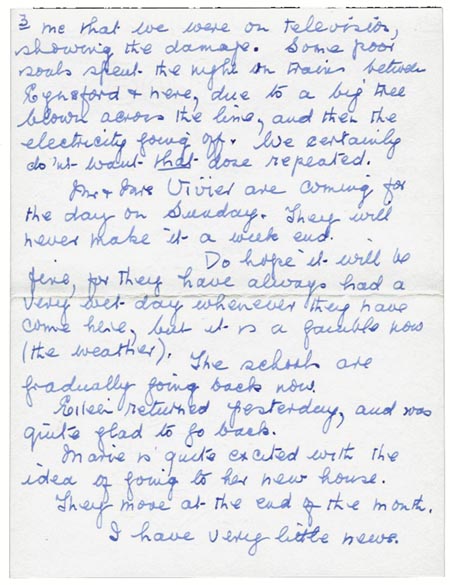 3 me that we were on television,
showing the damage. Some poor
souls spent the night on trains between
Eynsford & here, due to a big tree
blown across the line, and then the
electricity going off. We certainly
do'nt want that dose repeated.
Mr & Mrs Vivier are coming for
the day on Sunday. They will
never make it a week end.
Do hope it will be
fine, for they have always had a
very wet day whenever they have
come here, but it is a gamble now
(the weather). The schools are
gradually going back now.
Eileen returned yesterday, and was
quite glad to go back.
Marie is quite excited with the
idea of going to her new house.
They move at the end of the month.
I have very little news.